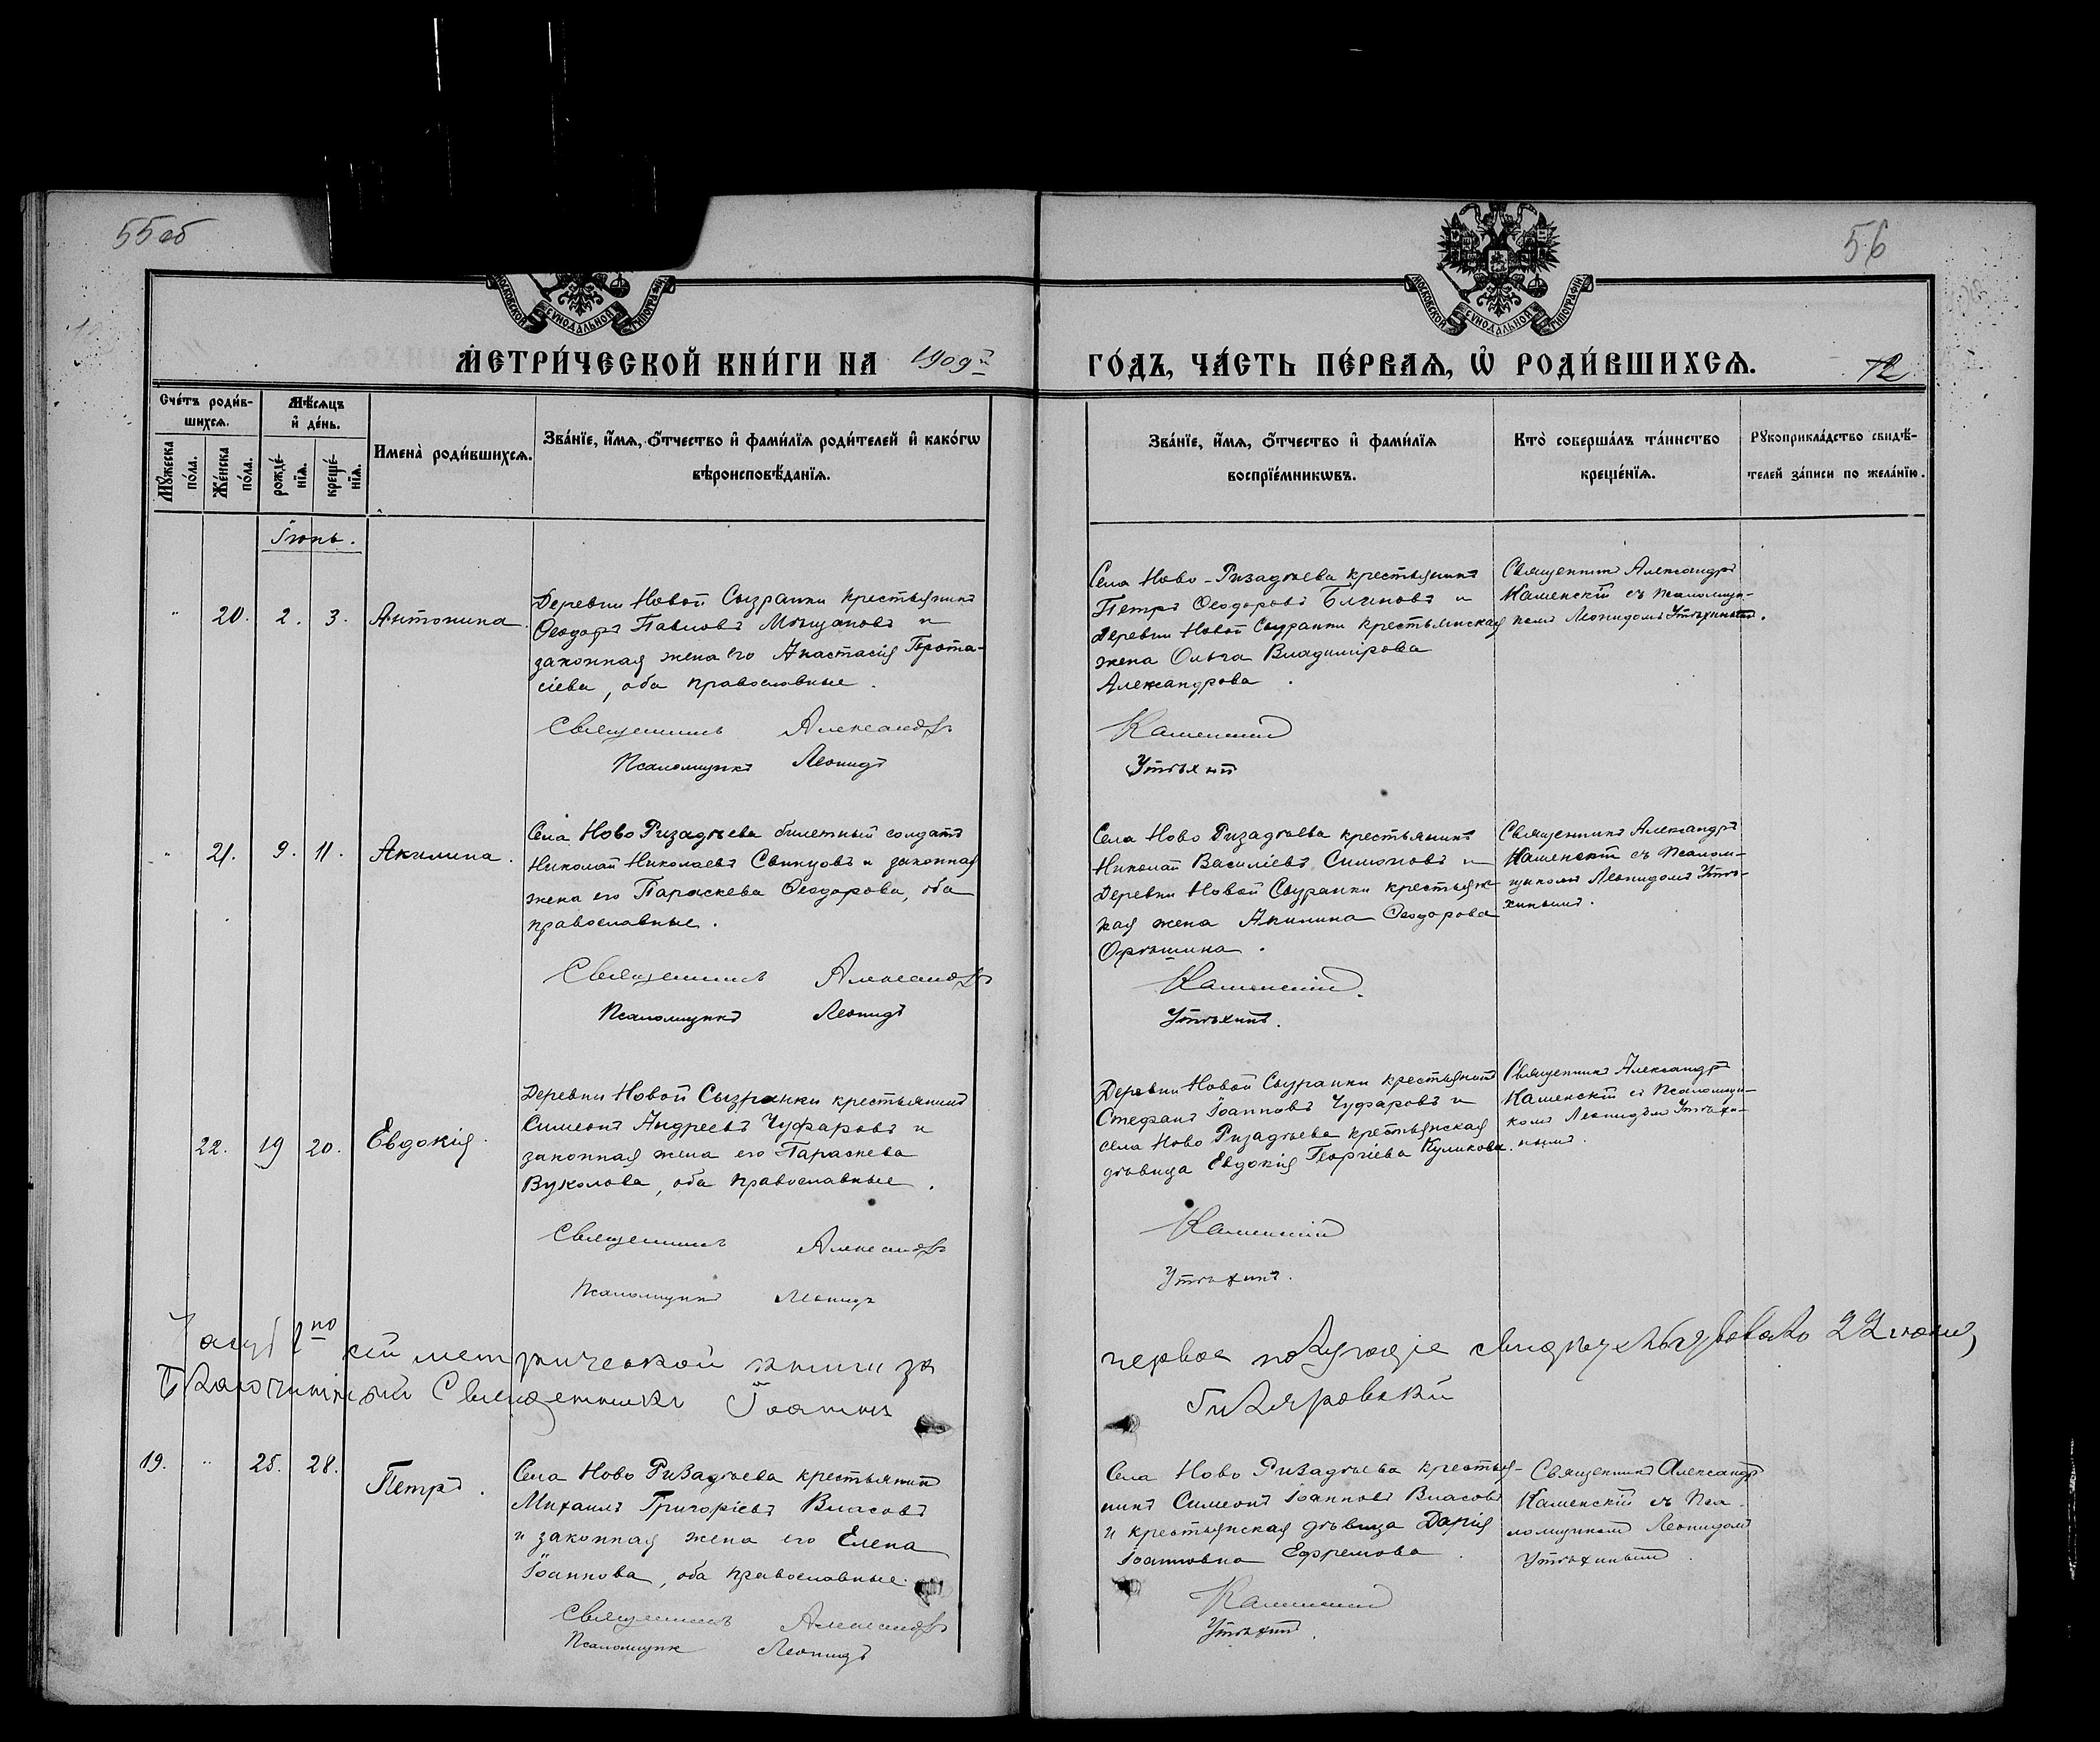 55об
56
МОСКОВСКОЙ СУНОДАЛЬНОЙ ТИПОГРАФІИ
МОСКОВСКОЙ СУНОДАЛЬНОЙ ТИПОГРАФІИ
МЕТРИ́ЧЕСКОЙ КНИ́ГИ НА 1909й
ГО́ДЪ, ЧА́СТЬ ПЕ́РВАѦ, Ѡ҆ РОДИ́ВШИХСѦ.
12
Сче́тъ роди́в-
шихсѧ.
Мѣ́сѧцъ
и҆ де́нь.
Мꙋ́жеска
по́ла.
Же́нска
по́ла.
рожде́-
нїѧ.
креще́-
нїѧ.
Имена̀ роди́вшихсѧ.
Зва́нїе, и҆́мѧ, ѻ҆́тчество и҆ фами́лїѧ роди́телей и҆ како́гѡ
вѣроисповѣ́данїѧ.
Зва́нїе, и҆́мѧ, ѻ҆́тчество и҆ фами́лїѧ
воспрїе́мникѡвъ.
Кто̀ соверша́лъ та́инство
креще́нїѧ.
Рꙋкоприкла́дство свидѣ́-
телей за́писи по жела́нїю.
Іюнь.
" 20. 2. 3. Антонина.
Деревни Новой Сызранки крестьянинъ
Ѳеодоръ Павловъ Мѣщановъ и
законная жена его Анастасія Прота-
сіева, оба православные.
Священникъ Александръ
Псаломщикъ Леонидъ
Села Ново-Ризадѣева крестьянинъ
Петръ Ѳеодоровъ Блиновъ и
Деревни Новой Сызранки крестьянская
жена Ольга Владимірова
Александрова.
Каменскій
Утѣхинъ
Священникъ Александръ
Каменскій съ псаломщи-
комъ Леонидомъ Утѣхинымъ.
" 21. 9. 11. Акилина.
Села Ново Ризадѣева билетный солдатъ
Николай Николаевъ Свинцовъ и законная
жена его Параскева Ѳеодорова, оба
православные.
Священникъ Александръ
Псаломщикъ Леонидъ
Села Ново Ризадѣева крестьянинъ
Николай Василіевъ Симоновъ и
Деревни Новой Сызранки крестьян-
кая жена Акилина Ѳеодорова
Каменскій.
Утѣхинъ.
Священникъ Александръ
Каменскій съ Псалом-
щикомъ Леонидомъ Утѣ-
хинымъ.
22. 19 20. Евдокія.
Деревни Новой Сызранки крестьянинъ
Симеонъ Андреевъ Чуфаровъ и
законная жена его Параскева
Вуколова, оба православные.
Священникъ Александръ
Псаломщикъ Леонидъ
Деревни Новой Сызранки крестьянинъ
Стефанъ Іоанновъ Чуфаровъ и
села Ново Ризадѣева крестьянская
дѣвица Евдокія Георгіева Куликова.
Каменскій
Утѣхинъ.
Священникъ Александръ
Каменскій съ Псаломщи-
комъ Леонидомъ Утѣхи-
нымъ.
Часть 1ую сей метрической книги за
первое полугодіе свидѣтельствовалъ 22 іюня
Благочинный Священникъ Іоаннъ
Гиляровскій
19. " 25. 28. Петръ.
Села Ново Ризадѣева крестьянинъ
Михаилъ Григоріевъ Власовъ
и законная жена его Елена
Іоаннова, оба православные.
Священникъ Александръ
Псаломщикъ Леонидъ
Села Ново Ризадѣева крестья-
нинъ Симеонъ Іоанновъ Власовъ
и крестьянская дѣвица Дарія
Іоанновна Ефремова.
Каменскій
Утѣхинъ.
Священникъ Александръ
Каменскій съ Пса-
ломщикомъ Леонидомъ
Утѣхинымъ.